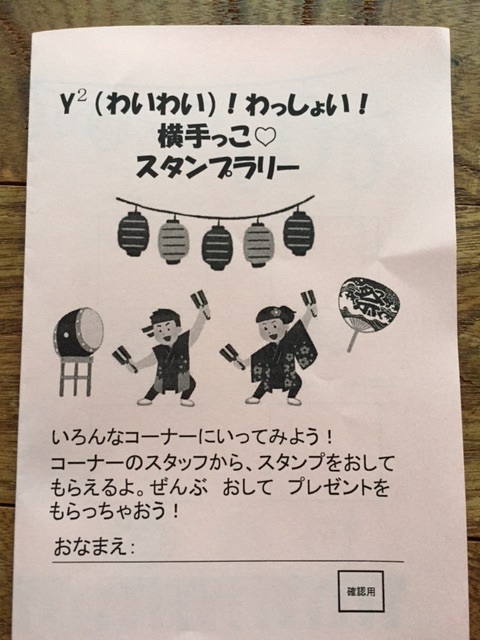 Y²(わいわい)！わっしょい！
横手っこ♡
スタンプラリー
祭
いろんなコーナーにいってみよう！
コーナーのスタッフから、スタンプをおして
もらえるよ。ぜんぶ　おして　プレゼントを
もらっちゃおう！
おなまえ：
確認用